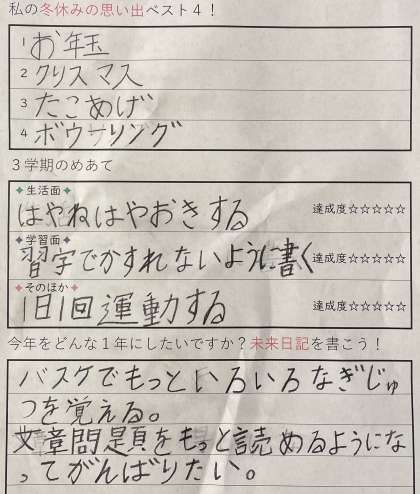 私の冬休みの思い出ベスト4！
1 お年玉
2 クリスマス
3 たこあげ
4 ボウリング
3学期のめあて
✦生活面✦
はやねはやおきする 達成度☆☆☆☆☆
✦学習面✦
習字でかすれないように書く 達成度☆☆☆☆☆
✦そのほか✦
1日1回運動する 達成度☆☆☆☆☆
今年をどんな1年にしたいですか？未来日記を書こう！
バスケでもっといろいろなぎじゅ
つを覚える。
文章問題をもっと読めるようにな
ってがんばりたい。